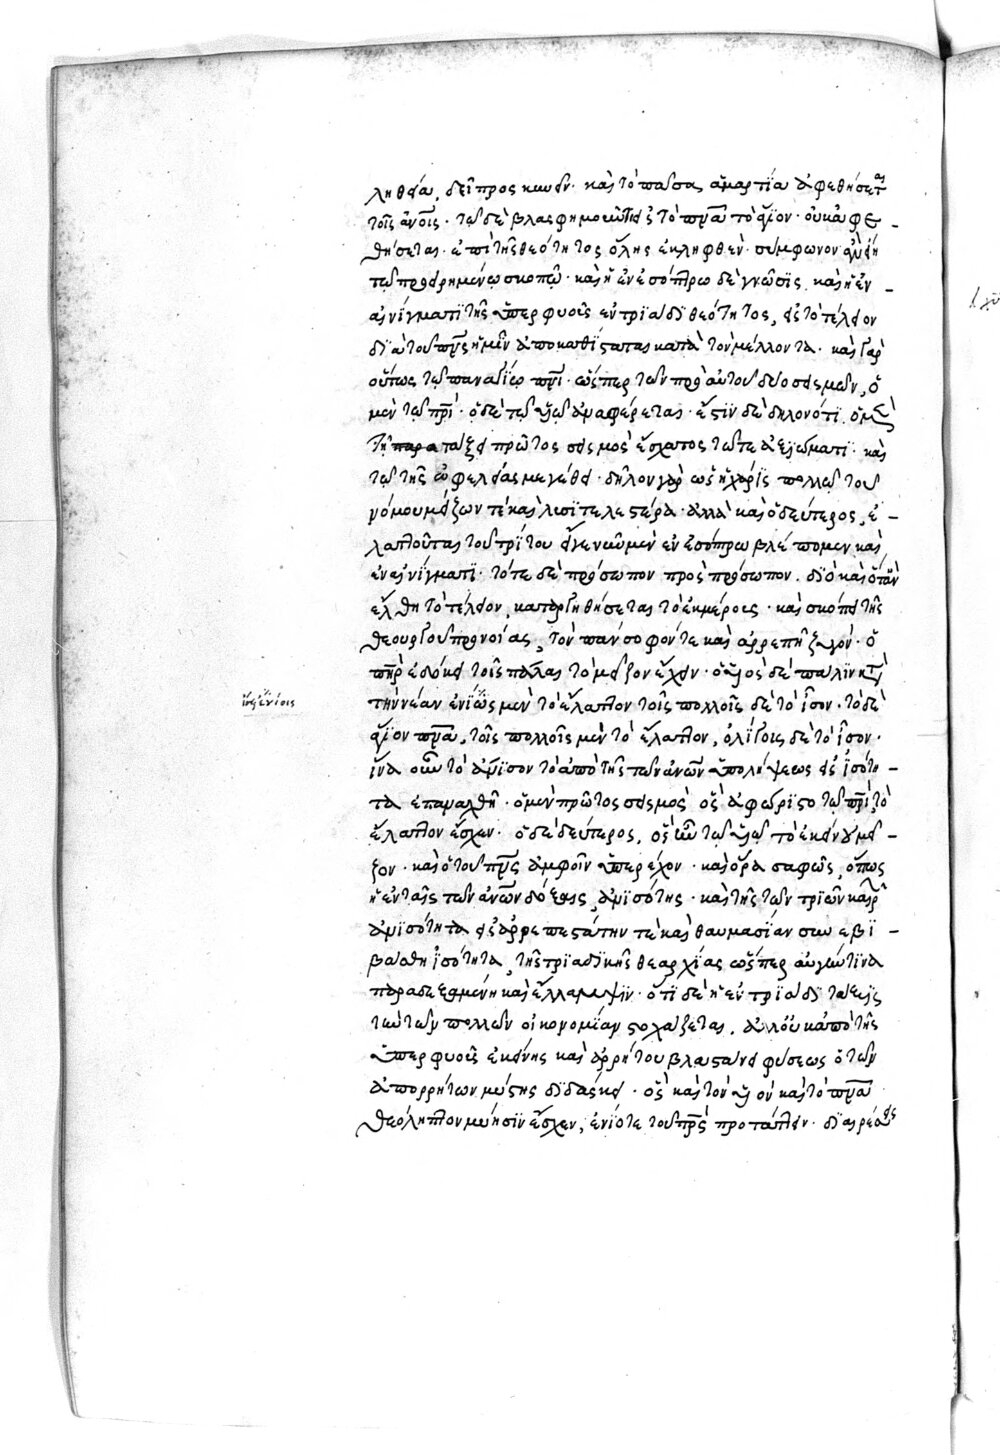 ληθεία, δεῖ προς κωδν· καὶ τὸ πᾶσα ἁμαρτία ἀφεθήσεται
τοῖς ἀνοις· τῶ δὲ βλασφημοῦντι εἰς τὸ πνα τὸ ἅγϊον· οὐκ ἀφε-
θήσεται· ἐπὶ τῆς θεότητος ὅλης ἐκληφθὲν· σύμφωνον ἂν εἴη
τῶ προειρημένω σκοπῶ· καὶ ἡ ἐν ἐσόπτρω δὲ γνῶσϊς καὶ ἡ ἐν
αἰνίγματϊ τῆς ὑπερφυοῦς ἐν τρϊάδϊ θεότητος, εἰς τὸ τέλειον
δϊὰ τοῦ πνς ἡμῖν ἀποκαθίσταται κατὰ τὸν μέλλοντα· καὶ γὰρ
οὕπως τῶ παναγίω πνι· ὥσπερ τῶν πρὸ αὐτοῦ δύο σεισμῶν, ὁ
μὲν τῶ πρϊ· ὁ δὲ τῶ υἱῶ ἀναφέρεται· ἔστϊν δὲ δηλονότι ὁμς
τῆ παρα ταξει πρῶτος σεισμὸς ἔσχατος τῶ τε ἀξϊώματϊ· καὶ
τῶ τῆς ὠφελείας μεγέθει· δῆλον γὰρ ὡς ἡ χάρϊς πολλῶ τοῦ
νόμου μείζων τὲ καὶ λυσϊτελεστέρα· ἀλλὰ καὶ ὁ δεύτερος, ἐ-
λαττοῦται τοῦ τρίτου εἴγε νῦν μὲν ἐν ἐσόπτρω βλέπομεν καὶ
ἐν αἰνίγματϊ· τότε δὲ πρόσωπον πρὸς πρόσωπον. δϊὸ καὶ ὅταν
ἔλθη τὸ τέλειον, καταργηθήσεται τὸ ἐκ μέρους· καὶ σκόπει τῆς
θεουργοῦ προνοίας, τὸν πάνσοφόν τε καὶ ἀρρεπῆ ζυγόν· ὁ
πηρ ἔδοκει τοῖς πάλαι τὸ μεῖζον ἔχειν· ὁ υἱος δὲ πάλϊν κατὰ
τὴν νέαν ἐνίοις μὲν τὸ ἔλαττον τοῖς πολλοῖς δὲ τὸ ἶσον· τὸ δὲ
ἅγϊον πνα, τοῖς πολλοῖς μὲν τὸ ἔλαττον, ὀλίγοις δὲ τὸ ἶσον·
ἵνα οὖν τὸ ἄνϊσον τὸ ἀπὸ τῆς τῶν ἀνων ὑπολήψεως εἰς ἰσότη-
τα ἐπαναχθῆ· ὁ μὲν πρῶτος σεισμὸς ὃς ἀφώρϊστο τῶ πρὶ τὸ
ἔλαττον ἔσχεν· ὁ δὲ δεύτερος, ὃς ἦν τῶ υἱῶ τὸ ἐκείνου μεῖ-
ζον· καὶ ὁ τοῦ πνς ἀμφοῖν ὑπερέχον· καὶ ὅρα σαφῶς, ὅπως
ἡ ἐν ταῖς τῶν ἀνων δόξαις ἀνϊσότης· καὶ τῆς τῶν τριῶν καιρῶν
ἀνϊσότητα εἰς ἀρρεπεστάτην τὲ καὶ θαυμασίαν συνεβϊ-
βάσθη ἰσότητα, τῆς τρϊαδϊκῆς θεαρχίας ὥσπερ αὐγὴν τϊνα
παραδεξαμένη καὶ ἔλλαμψϊν· ὅτϊ δὲ ἡ ἐν τρϊάδϊ τάξϊς
τῶν πολλῶν οἰκονομίαν στοχάζεται. ἀλλ' οὐκ ἀπὸ τῆς
ὑπερφυοῦς ἐκείνης καὶ ἀρρήτου βλαστάνει φύσεως ὁ τῶν
ἀπορρήτων μύστης δϊδάσκει· ὃς καὶ τὸν υἱον καὶ τὸ πνα
θεόληπτον μύησϊν ἔσχεν, ἐνίοτε τοῦ πρς προτάττειν· δϊαιρέσεις